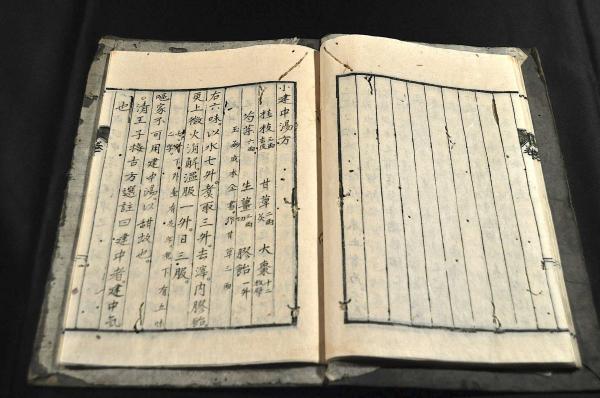 小建中湯方
桂枝三兩去皮 甘草二兩炙 大棗十二枚擘
芍藥六兩 生薑三兩切 膠飴一升
右六味以水七升煮取三升去滓內膠飴
更上微火消解溫服一升日三服。
嘔家不可用建中湯以甜故也。
清王子接古方選註曰建中者建中氣
也